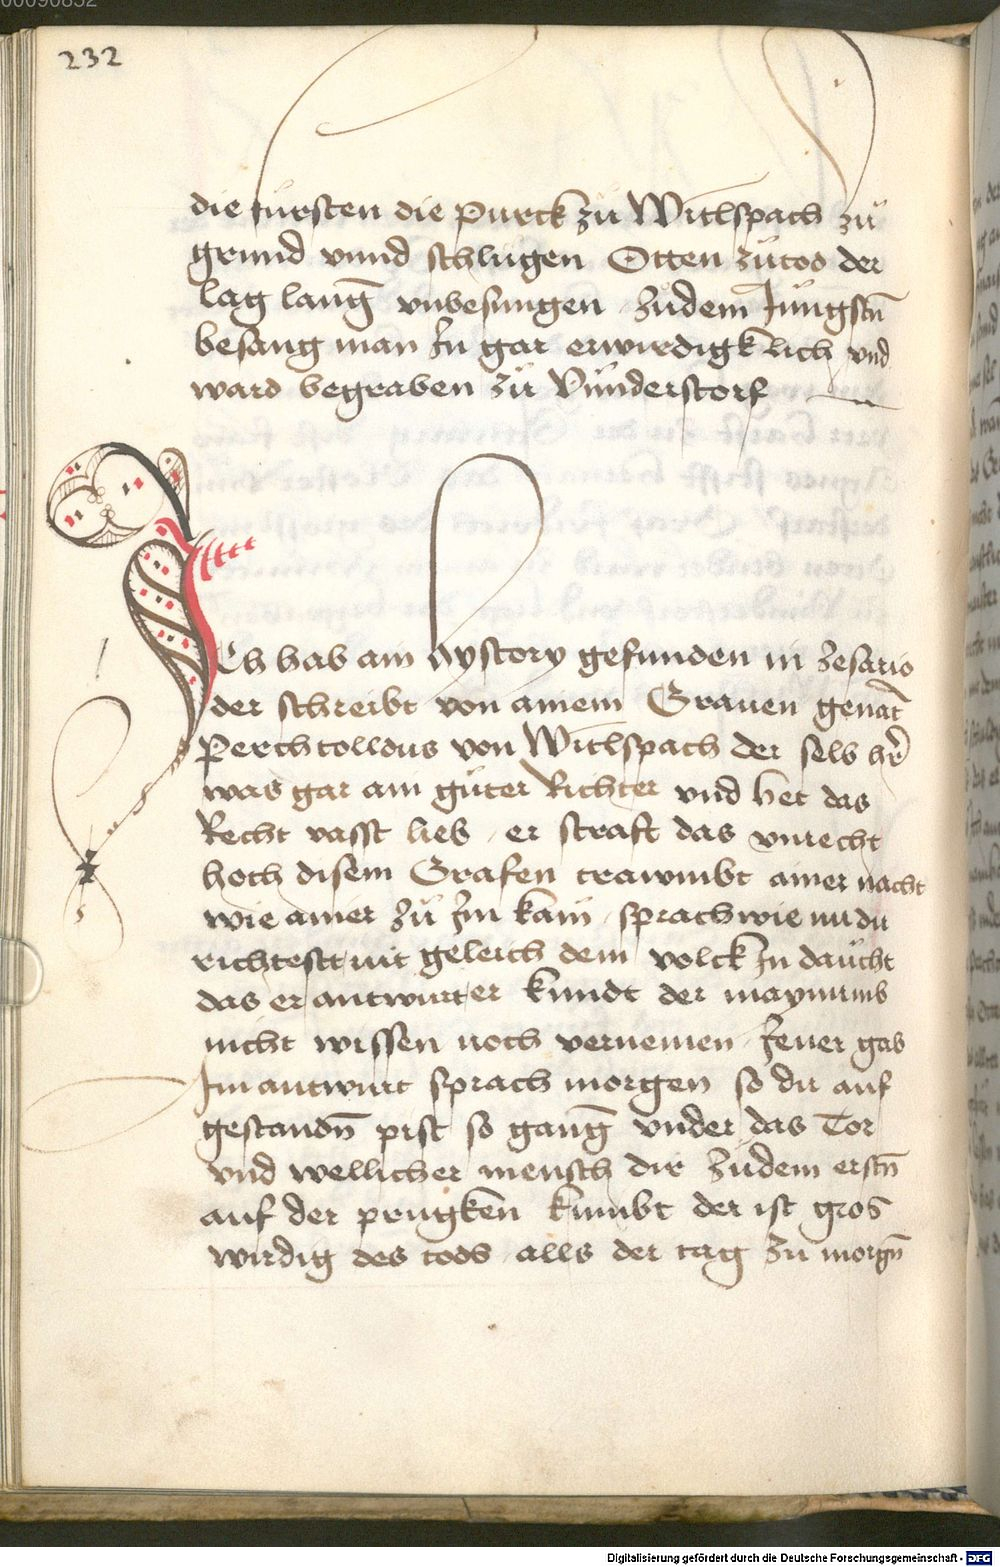 00090852
232
die fürsten die Purck zü Witlspach zü
grund vnnd schlügen Otten zütod der
lag lanḡ vnbesungen zudem Jüngstn̄
besang man In gar erwirdigklich vnd
ward begraben zü Vnnderstorf
ICh hab ain hystory gefunden in Zesario
der schreibt von ainem Grauen genāt
Perchtolldus von Witlspach der selb hr̄
was gar ain güter Richter vnd het das
Recht vasst lieb er straft das vnrecht
hoch disem Grafen trawmbt ainer nacht
wie ainer zü Im kam sprach wie nu du
richtestt nit geleich dem volck In daücht
das er antwurt er kundt der maynunb
nicht wissen noch vernemen Jener gab
Im antwurt sprach morgen so du auf
gestandn̄ pist so ganḡ vnder das Tor
vnd wellicher mensch dir zudem erstn̄
auf der prugken kumbt der ist gros
wirdig des tods alls der tag zu morgn̄
Digitalisierung gefördert durch die Deutsche Forschungsgemeinschaft - DFG